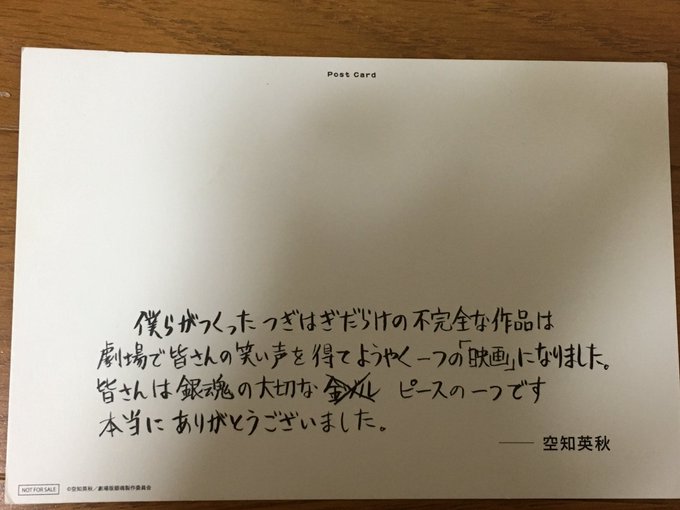 Post Card
僕らがつくった つぎはぎだらけの不完全な作品は
劇場で皆さんの笑い声を得てようやく一つの「映画」になりました。
皆さんは銀魂の大切な 金ヅル ピースの一つです
本当にありがとうございました。
── 空知英秋
NOT FOR SALE
©空知英秋/劇場版銀魂製作委員会